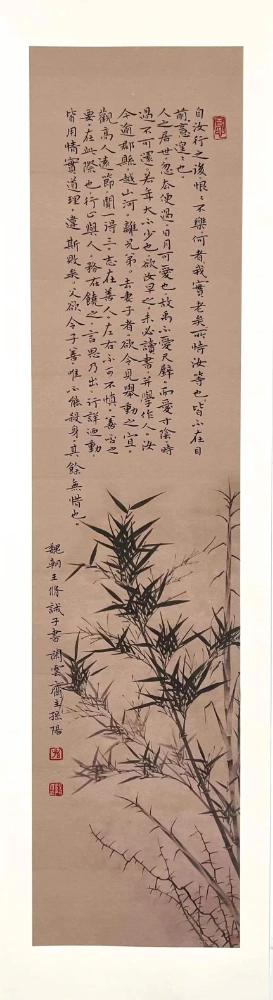 自汝行之後恨〻不樂何者我實老矣所恃汝等也皆不在目
前意遑〻也
人之居世忽去便過日月可愛也故禹不愛尺璧而愛寸陰時
過不可還若年大不可少也欲汝早之未必讀書并學作人汝
今逾郡縣越山河離兄弟去妻子者欲令見舉動之宜
觀高人遠節聞一得三志在善人左右不可不慎善否之
要在此際也行止與人務在饒之言思乃出行詳乃動
皆用情實道理違斯敗矣父欲令子善唯不能殺身其餘無惜也
魏朝王修誡子書 謝雲齋主孫陽